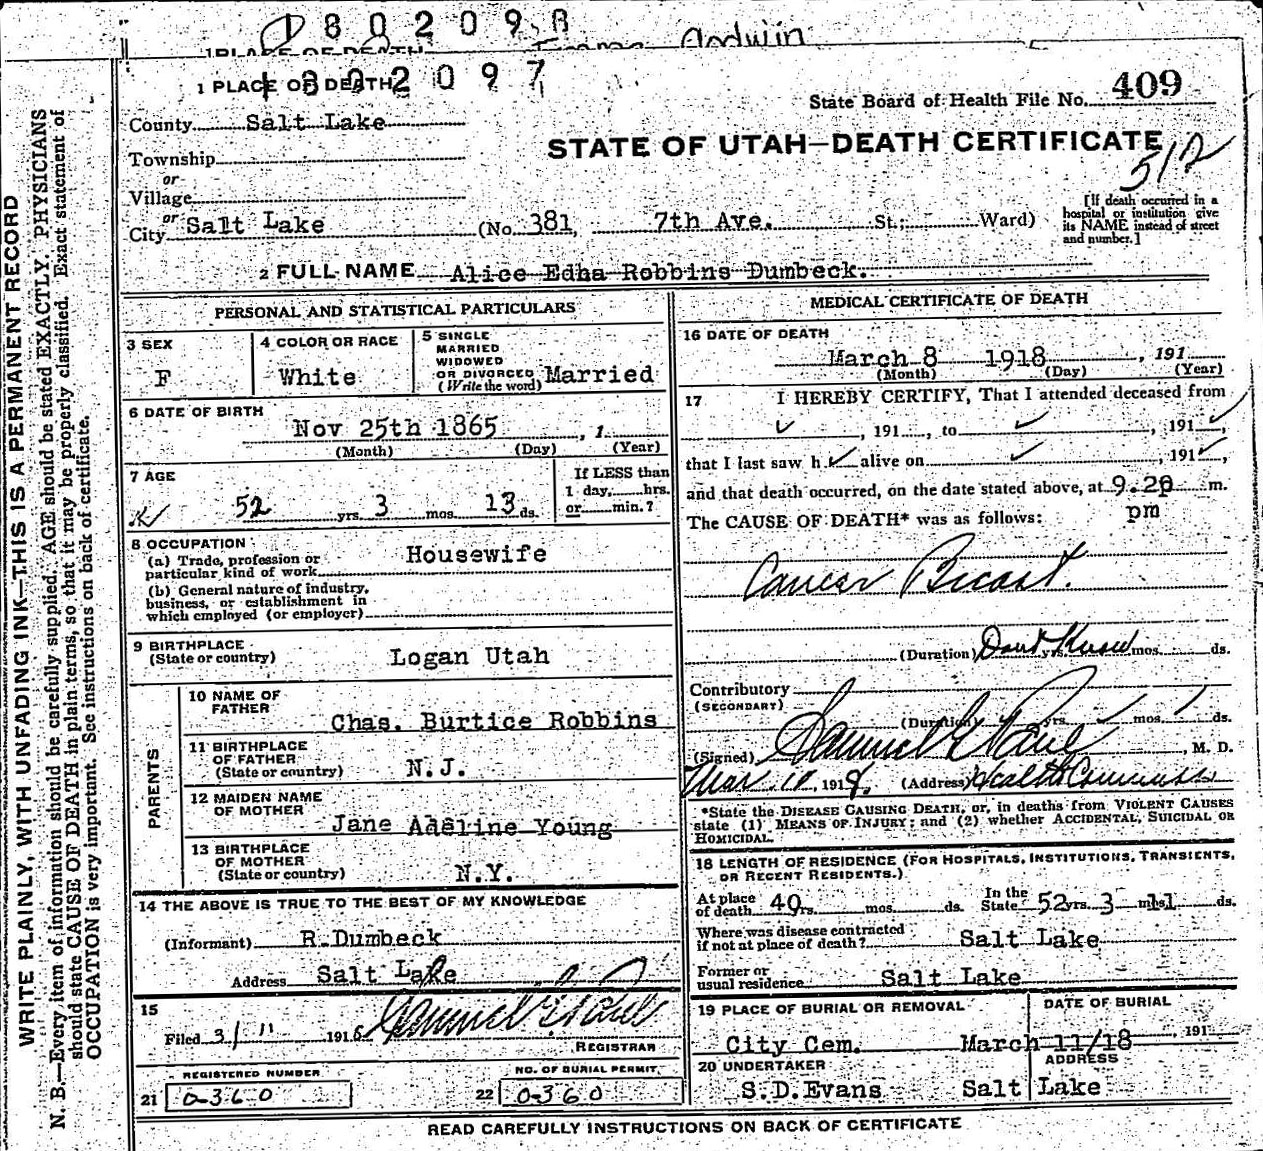 1802098
1 PLACE OF DEATH Godwin
1 PLACE OF DEATH 1802097
State Board of Health File No. 409
County Salt Lake
STATE OF UTAH—DEATH CERTIFICATE
512
Township
or
Village
or
City Salt Lake (No. 381, 7th Ave. St.; Ward)
[If death occurred in a
hospital or institution give
its NAME instead of street
and number.]
2 FULL NAME Alice Edna Robbins Dumbeck.
PERSONAL AND STATISTICAL PARTICULARS
3 SEX
F
4 COLOR OR RACE
White
5 SINGLE
MARRIED
WIDOWED
OR DIVORCED
(Write the word) Married
6 DATE OF BIRTH
Nov 25th 1865, 1
(Month) (Day) (Year)
7 AGE
52 yrs. 3 mos. 13 ds.
If LESS than
1 day, hrs.
or min.?
8 OCCUPATION
(a) Trade, profession or
particular kind of work Housewife
(b) General nature of industry,
business, or establishment in
which employed (or employer)
9 BIRTHPLACE
(State or country) Logan Utah
PARENTS
10 NAME OF
FATHER Chas. Burtice Robbins
11 BIRTHPLACE
OF FATHER
(State or country) N.J.
12 MAIDEN NAME
OF MOTHER Jane Adeline Young
13 BIRTHPLACE
OF MOTHER
(State or country) N.Y.
14 THE ABOVE IS TRUE TO THE BEST OF MY KNOWLEDGE
(Informant) R.Dumbeck
Address Salt Lake
15
Filed 3/11 1918 Samuel G. Paul
REGISTRAR
REGISTERED NUMBER
21 0360
NO. OF BURIAL PERMIT
22 0360
MEDICAL CERTIFICATE OF DEATH
16 DATE OF DEATH
March 8 1918, 191
(Month) (Day) (Year)
17 I HEREBY CERTIFY, That I attended deceased from
, 191 , to , 191 ,
that I last saw h alive on , 191 ,
and that death occurred, on the date stated above, at 9.20 m.
pm
The CAUSE OF DEATH* was as follows:
Cancer Breast.
(Duration) Dont Know yrs. mos. ds.
Contributory
(SECONDARY)
(Duration) yrs. mos. ds.
(Signed) Samuel G Paul, M. D.
Mar. 10, 1918. (Address) Health Commiss
*State the DISEASE CAUSING DEATH, or, in deaths from VIOLENT CAUSES
state (1) MEANS OF INJURY; and (2) whether ACCIDENTAL, SUICIDAL OR
HOMICIDAL.
18 LENGTH OF RESIDENCE (FOR HOSPITALS, INSTITUTIONS, TRANSIENTS,
OR RECENT RESIDENTS.)
At place
of death 40 yrs. mos. ds.
In the
State 52 yrs. 3 mos. 11 ds.
Where was disease contracted
if not at place of death? Salt Lake
Former or
usual residence Salt Lake
19 PLACE OF BURIAL OR REMOVAL
City Cem.
DATE OF BURIAL
March 11/18 191
20 UNDERTAKER
S.D.Evans
ADDRESS
Salt Lake
READ CAREFULLY INSTRUCTIONS ON BACK OF CERTIFICATE
WRITE PLAINLY, WITH UNFADING INK—THIS IS A PERMANENT RECORD
N. B.—Every item of information should be carefully supplied. AGE should be stated EXACTLY. PHYSICIANS
should state CAUSE OF DEATH in plain terms, so that it may be properly classified. Exact statement of
OCCUPATION is very important. See instructions on back of certificate.